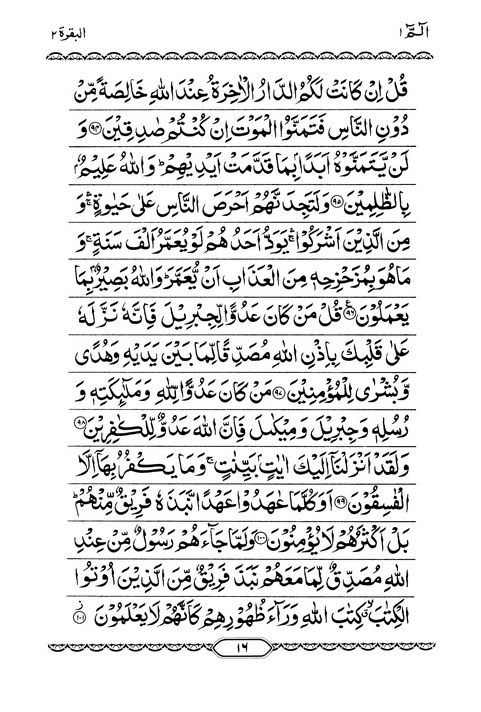 الٓـمّٓ ١
البقرة ٢
قُلْ اِنْ كَانَتْ لَكُمُ الدَّارُ الْاٰخِرَةُ عِنْدَ اللّٰهِ خَالِصَةً مِّنْ
دُوْنِ النَّاسِ فَتَمَنَّوُا الْمَوْتَ اِنْ كُنْتُمْ صٰدِقِيْنَ ﴿٩٤﴾ وَ
لَنْ يَّتَمَنَّوْهُ اَبَدًۢا بِمَا قَدَّمَتْ اَيْدِيْهِمْ ؕ وَاللّٰهُ عَلِيْمٌۢ
بِالظّٰلِمِيْنَ ﴿٩٥﴾ وَلَتَجِدَنَّهُمْ اَحْرَصَ النَّاسِ عَلٰى حَيٰوةٍ ۛۚ وَ
مِنَ الَّذِيْنَ اَشْرَكُوْا ۛۚ يَوَدُّ اَحَدُهُمْ لَوْ يُعَمَّرُ اَلْفَ سَنَةٍ ۚ وَ
مَا هُوَ بِمُزَحْزِحِهٖ مِنَ الْعَذَابِ اَنْ يُّعَمَّرَ ؕ وَاللّٰهُ بَصِيْرٌۢ بِمَا
يَعْمَلُوْنَ ﴿٩٦﴾ ع قُلْ مَنْ كَانَ عَدُوًّا لِّجِبْرِيْلَ فَاِنَّهٗ نَزَّلَهٗ
عَلٰى قَلْبِكَ بِاِذْنِ اللّٰهِ مُصَدِّقًا لِّمَا بَيْنَ يَدَيْهِ وَهُدًى
وَّبُشْرٰى لِلْمُؤْمِنِيْنَ ﴿٩٧﴾ مَنْ كَانَ عَدُوًّا لِّلّٰهِ وَمَلٰٓئِكَتِهٖ وَ
رُسُلِهٖ وَجِبْرِيْلَ وَمِيْكٰىلَ فَاِنَّ اللّٰهَ عَدُوٌّ لِّلْكٰفِرِيْنَ ﴿٩٨﴾
وَلَقَدْ اَنْزَلْنَاۤ اِلَيْكَ اٰيٰتٍۭ بَيِّنٰتٍ ۚ وَمَا يَكْفُرُ بِهَاۤ اِلَّا
الْفٰسِقُوْنَ ﴿٩٩﴾ اَوَكُلَّمَا عٰهَدُوْا عَهْدًا نَّبَذَهٗ فَرِيْقٌ مِّنْهُمْ ؕ
بَلْ اَكْثَرُهُمْ لَا يُؤْمِنُوْنَ ﴿١٠٠﴾ وَلَمَّا جَآءَهُمْ رَسُوْلٌ مِّنْ عِنْدِ
اللّٰهِ مُصَدِّقٌ لِّمَا مَعَهُمْ نَبَذَ فَرِيْقٌ مِّنَ الَّذِيْنَ اُوْتُوا
الْكِتٰبَ ۙۗ كِتٰبَ اللّٰهِ وَرَآءَ ظُهُوْرِهِمْ كَاَنَّهُمْ لَا يَعْلَمُوْنَ ﴿١٠١﴾ ز
١٦